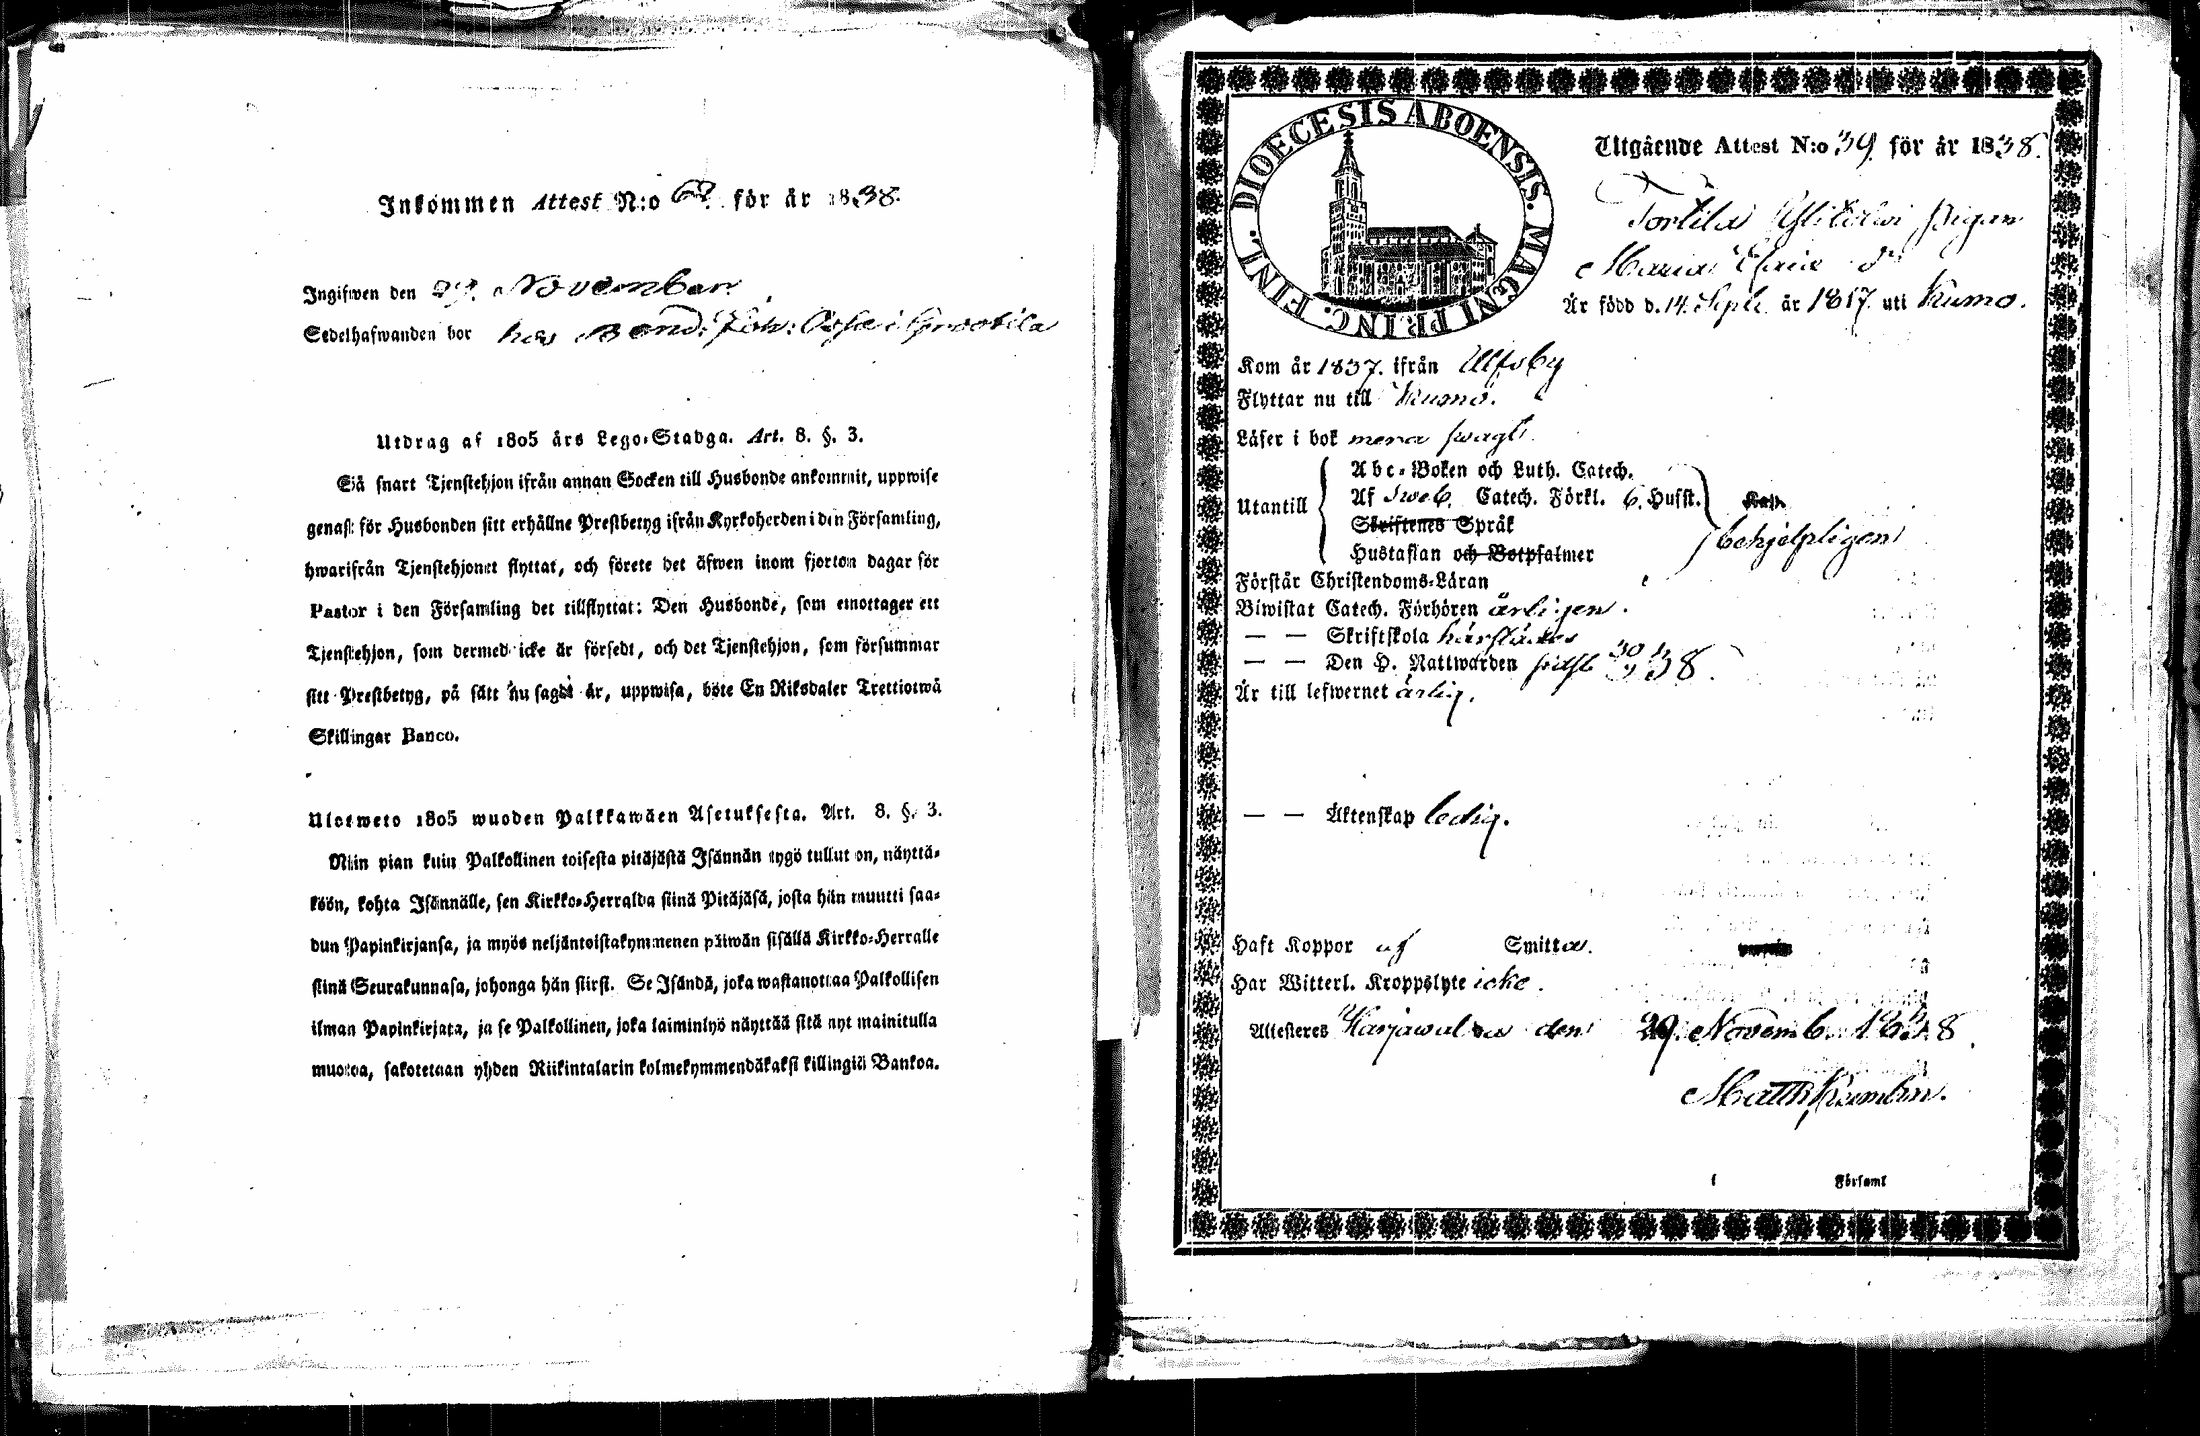 Inkommen Attest N:o 62. för år 1838.
Ingifwen den 29. November
Sedelhafwanden bor hos Bond: Joh: i
Utdrag af 1805 års Lego-Stadga. Art. 8. §. 3.
Så snart Tjenstehjon ifrån annan Socken till Husbonde ankommit, uppwise
genast för Husbonden sitt erhållne Prestbetyg ifrån Kyrkoherden i den Församling,
hwarifrån Tjenstehjonet flyttat, och förete det äfwen inom fjorton dagar för
Pastor i den Församling det tillflyttat: Den Husbonde, som emottager ett
Tjenstehjon, som dermed icke är försedt, och det Tjenstehjon, som försummar
sitt Prestbetyg, på sätt nu sagdt är, uppwisa, böte En Riksdaler Trettiotwå
Skillingar Banco.
Ulosweto 1805 wuoden Palkkawäen Asetuksesta. Art. 8. §. 3.
Niin pian kuin Palkollinen toisesta pitäjästä Isännän tygö tullut on, näyttä-
köön, kohta Isännälle, sen Kirkko-Herralda siinä Pitäjäsä, josta hän muutti saa-
dun Papinkirjansa, ja myös neljäntoistakymmenen päiwän sisällä Kirkko-Herralle
siinä Seurakunnasa, johonga hän siirsi. Se Isändä, joka wastanottaa Palkollisen
ilman Papinkirjata, ja se Palkollinen, joka laiminlyö näyttää sitä nyt mainitulla
muotoa, sakotetaan yhden Riikintalarin kolmekymmendäkaksi killingiä Bankoa.
DIOECESIS ABOENSIS. MAGNI PRINC. FINL.
Utgående Attest N:o 39. för år 1838.
Torttila pigan
Maria
Är född d. 14. Sept. år 1817. uti Kumo.
Kom år 1837. ifrån Ulfsby
Flyttar nu till Kumo.
Läser i bok mera swagt.
Utantill
Abc-Boken och Luth. Catech.
Af Sweb. Catech. Förkl. 6. Husst.
Skriftenes Språk
Hustaflan och Botpsalmer
behjelpligen
Förstår Christendoms-Läran
Biwistat Catech. Förhören årligen.
— — Skriftskola härstädes
— — Den H. Nattwarden sidst 38.
Är till lefwernet ärlig.
— — Äktenskap ledig.
Haft Koppor af Smitta.
Har Witterl. Kroppslyte icke.
Attesteres Harjawalta den 29. Novemb. 1838
Matth
i Församl